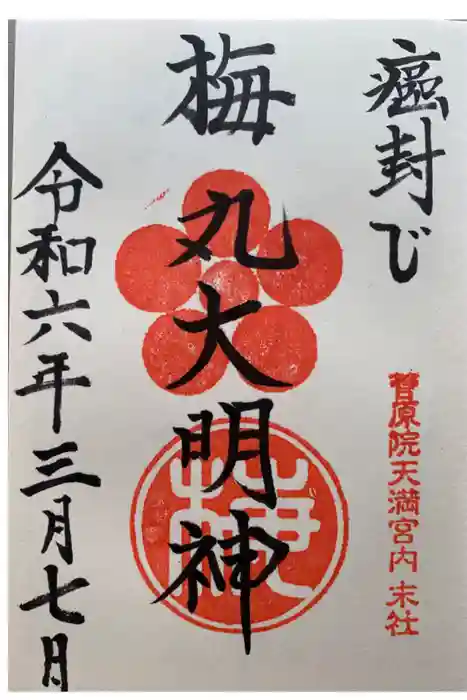 癌封び
菅原院天満宮内 末社
梅丸大明神
令和六年三月七日